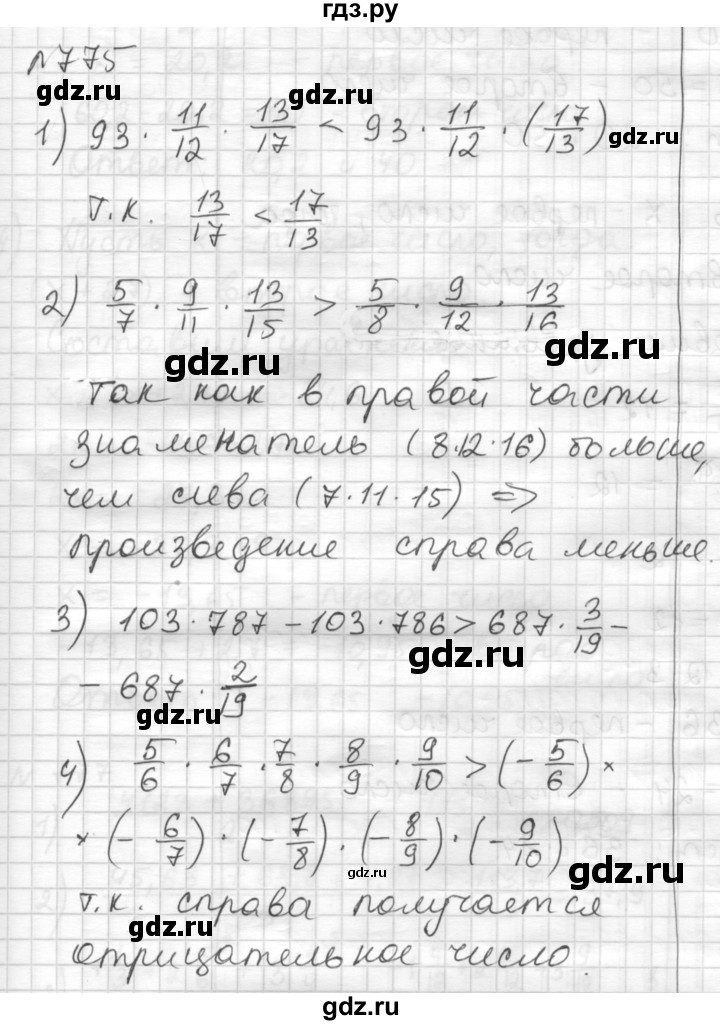 гдз.ру
№775
1) 93 · 11/12 · 13/17 < 93 · 11/12 · (17/13)
gdz.ru
т.к. 13/17 < 17/13
2) 5/7 · 9/11 · 13/15 > 5/8 · 9/12 · 13/16
gdz.ru
gdz.ru
так как в правой части
знаменатель (8·12·16) больше,
чем слева (7·11·15) =>
произведение справа меньше.
3) 103·787 – 103·786 > 687 · 3/19 –
gdz.ru
– 687 · 2/19
gdz.ru
4) 5/6 · 6/7 · 7/8 · 8/9 · 9/10 > (– 5/6) ×
× (– 6/7) · (– 7/8) · (– 8/9) · (– 9/10)
gdz.ru
gdz.ru
т.к. справа получается
gdz.ru
отрицательное число.
gdz.ru